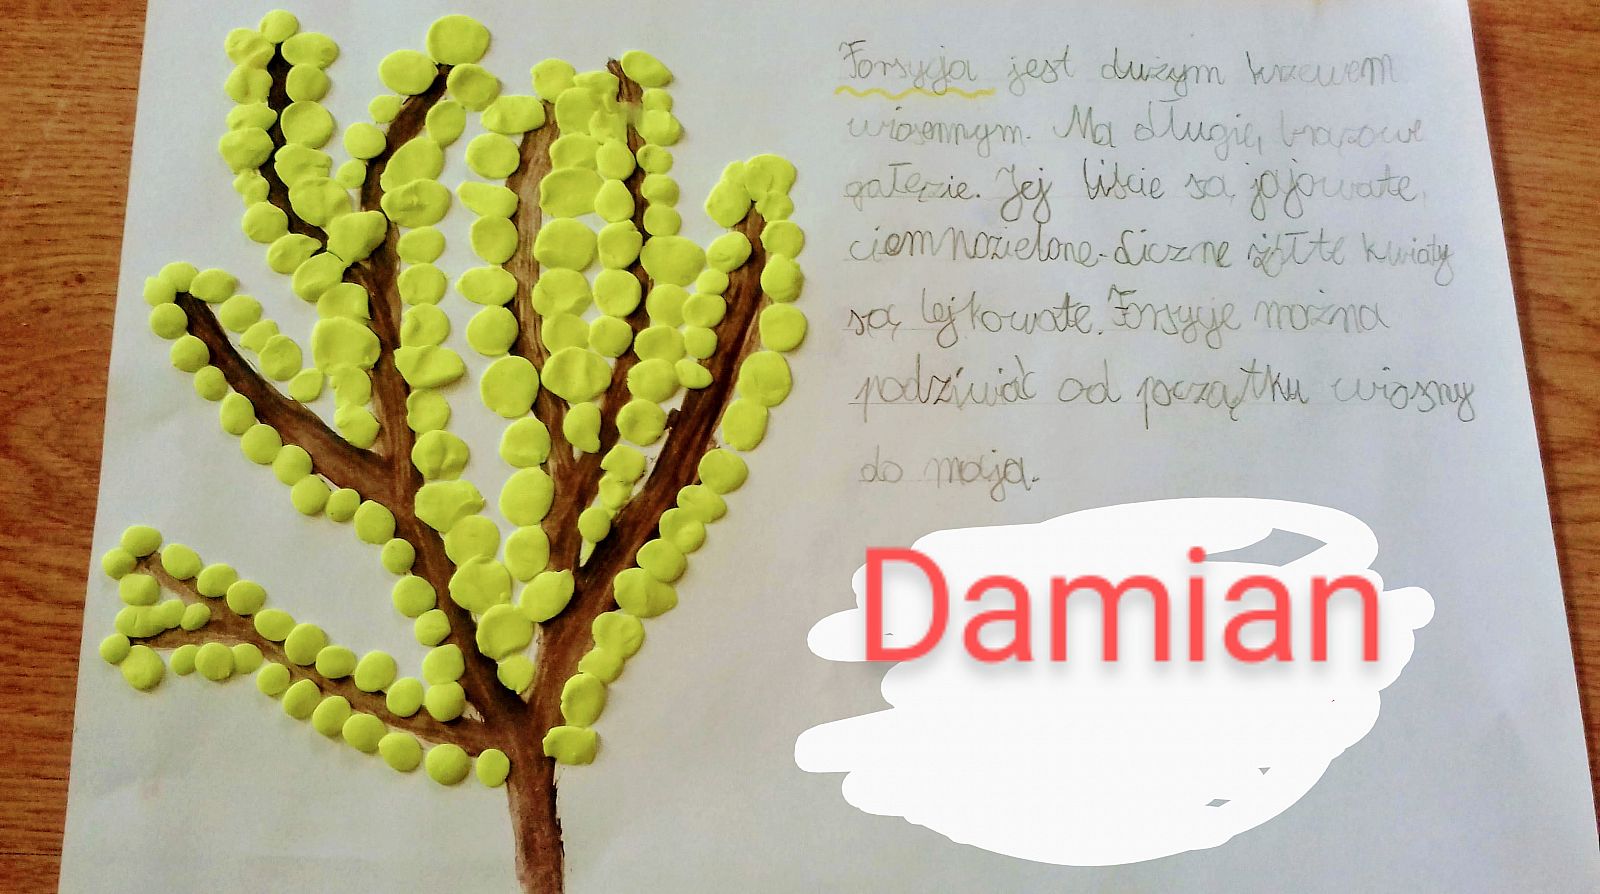 Forsycja jest dużym krzewem
wiosennym. Ma długie, brązowe
gałęzie. Jej liście są jajowate,
ciemnozielone. Liczne żółte kwiaty
są lejkowate. Forsycje można
podziwiać od początku wiosny
do maja.
Damian